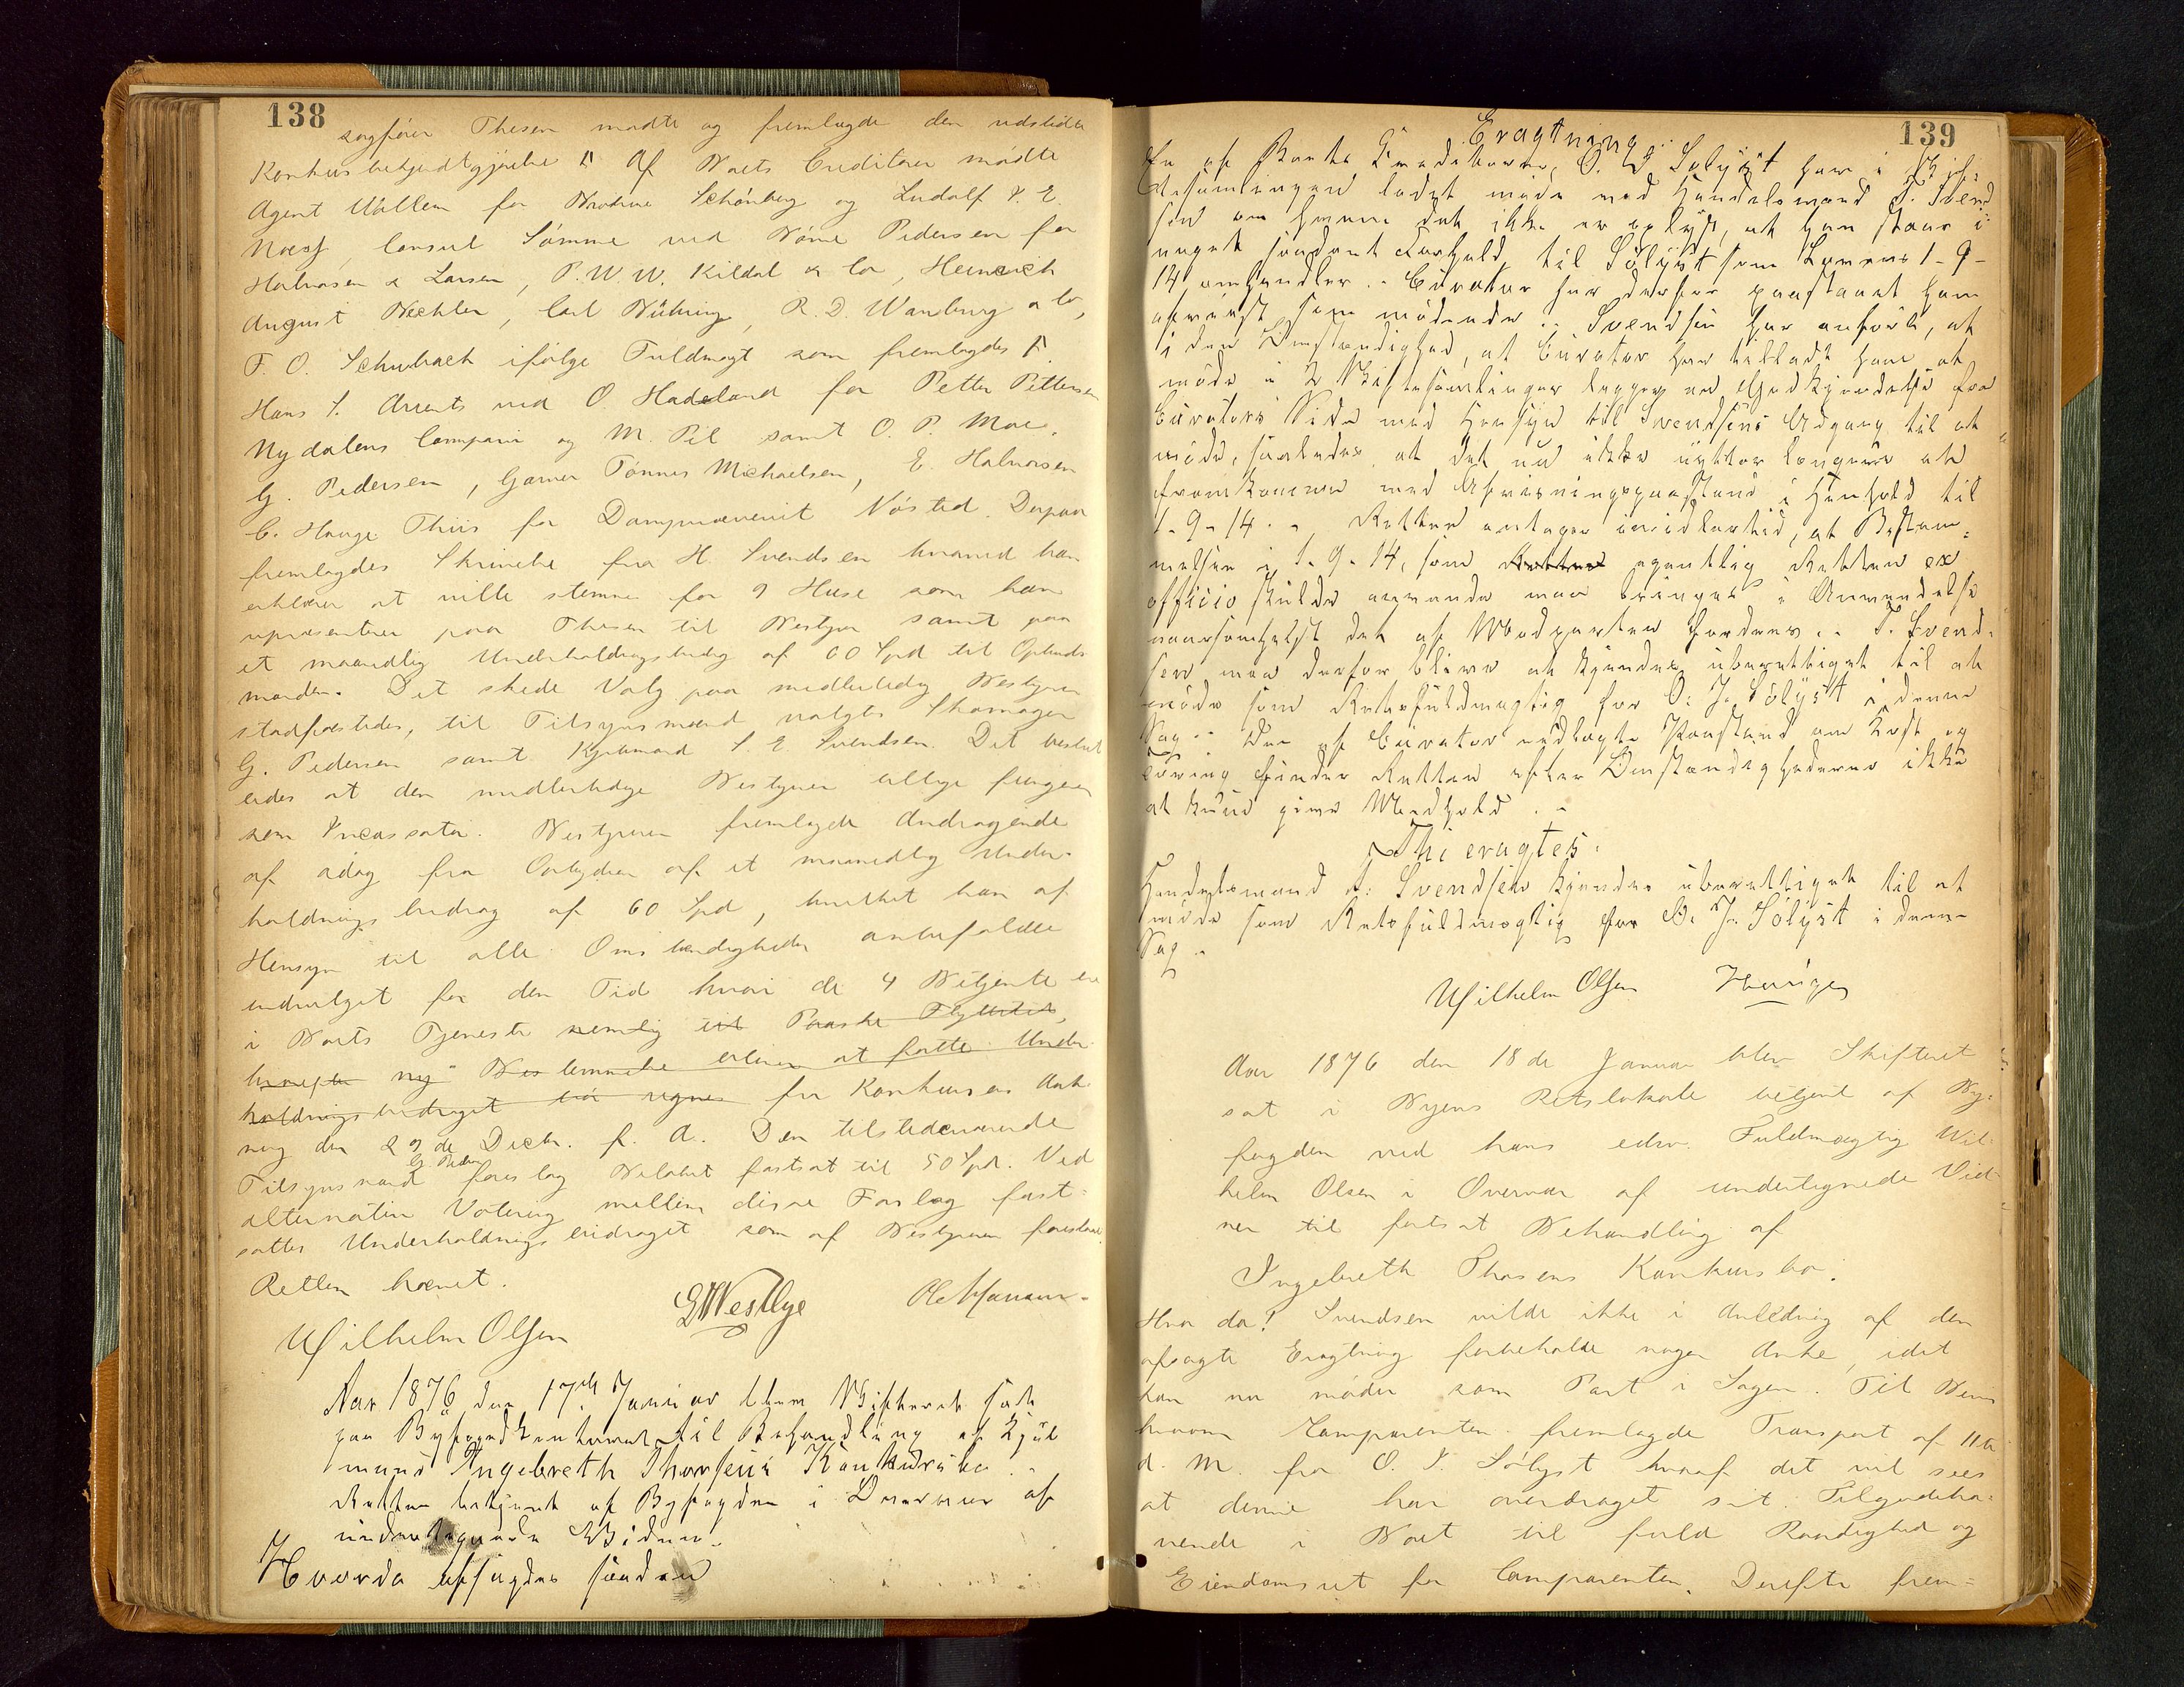 138
sagfører Thesen mødte og fremlagde den udstedte
Konkursbekjendtgjørelse. Af Boets Creditorer mødte
Agent Wallem for Brødrene Schönberg og Ludolf J. E.
Næss, Consul Sømme ved Pedersen for
Halvorsen & Larsen, P. W. W. Kildal & Co, Heinrich
August Wechler, Carl Bühring, R. D. Warburg & Co,
F. O. Schuback ifølge Fuldmagt som fremlagdes
Hans S. Arrents ved O Hadeland for Petter Pettersen
Nydalens Compani og M. Pil samt O. P. Moe,
G. Pedersen, Garver Tönnes Michaelsen, E. Halvorsen
C. Hauge Thiis for Dampvæveriet Nøsted. Derpaa
fremlagdes Skrivelse fra H. Svendsen hvorved han
erklærer at ville stemme for 9 Huse som han
repræsenterer paa Thesen til Bestyrer samt paa
et maanedlig Underholdningsbidrag af 60 Spd til Opbuds
manden. Det skede Valg paa midlertidig Bestyrer
stadfæstedes, til Tilsynsmænd valgtes Skomager
G. Pedersen samt Kjøbmand S. E Svendsen. Det beslut
tedes at den midlertidige Bestyrer tillige fungerer
som Incassator. Bestyreren fremlagde Andragende
af idag fra Opbyderen af et maanedlig Under-
holdnings bidrag af 60 Spd, hvilket han af
Hensyn til alle Omstændigheder anbefalede
indvilget for den Tid hvori de 4 Betjente er
i Boets Tjeneste nemlig til Paaske Flyttetid,
hvorefter ny Bestemmelse bliver at fatte. Under-
holdningsbidraget bør regnes fra Konkursens Aab-
ning den 29de Decbr. f. A. Den tilstedeværende
Tilsynsmand G. Pedersen foreslog Beløbet fastsat til 50 Spd. Ved
alternativ Votering mellem disse Forslag fast-
sattes Underholdningsbidraget som af Bestyreren foreslaaet.
Retten hævet.
Wilhelm Olsen EWestbye
Aar 1876 den 17de Januar blev Skifteret sat
paa Byfogedkontoret til Behandling af Kjøb
mand Ingebreth Thorsens Konkursbo. -
Retten betjent af Byfogden i Overvær af
undertegnede Vidner.
Hvorda afsagdes saadan
139
Eragtning:
En af Boets Kreditorer, O. J. Sølyst har i Skif-
tesamlingen ladet møde ved Handelsmand J. Svend
sen om hvem det ikke er oplyst, at han staar i
noget saadant Forhold til Sölyst som Lovens 1-9-
14 omhandler. - Curator har derfor paastaaet ham
afvist som mödende. - Svendsen har anført, at
i den Omstændighed, at Curator har tilladt ham at
møde i 2 Skiftesamlinger ligger en Godkjendelse fra
Curators Side med Hensyn til Svendsens Adgang til at
møde, saaledes at det nu ikke nytter længere at
fremkomme med Afvisningspaastand i Henhold til
1-9-14. - Retten antager imidlertid, at Bestem-
melsen i 1-9-14, som Retten egentlig Retten ex
officio skulde anvende maa bringes i Anvendelse
naarsomhelst det af Modparten fordres. - J. Svend-
sen maa derfor blive at kjende uberettiget til at
møde som Retsfuldmægtig for O. J. Sölyst i denne
Sag. - Den af Curator nedlagte Paastand om Kost og
Tæring finder Retten efter Omstændighederne ikke
at kunne give Medhold. -
Thi eragtes:
Handelsmand J. Svendsen kjendes uberettiget til at
møde som Retsfuldmægtig for O. J. Sölyst i denne
Sag -
Wilhelm Olsen
Aar 1876 den 18de Januar blev Skifteret
sat i Byens Retslokale betjent af By-
fogden ved hans edsv. Fuldmægtig Wil-
helm Olsen i Overvær af undertegnede Vid-
ner til fortsat Behandling af
Ingebreth Thorsens Konkursbo.
Hvor da! Svendsen vilde ikke i Anledning af den
afsagte Eragtning forbeholde nogen Anke, idet
han nu møder som Part i Sagen. Til Bevis
herom Comparenten fremlagde Transport af 11te
d. M. fra O. J. Sølyst hvoraf det vil sees
at denne har overdraget sit Tilgodeha-
vende i Boet til fuld Raadighed og
Eiendomsret for Comparenten. Derefter frem-